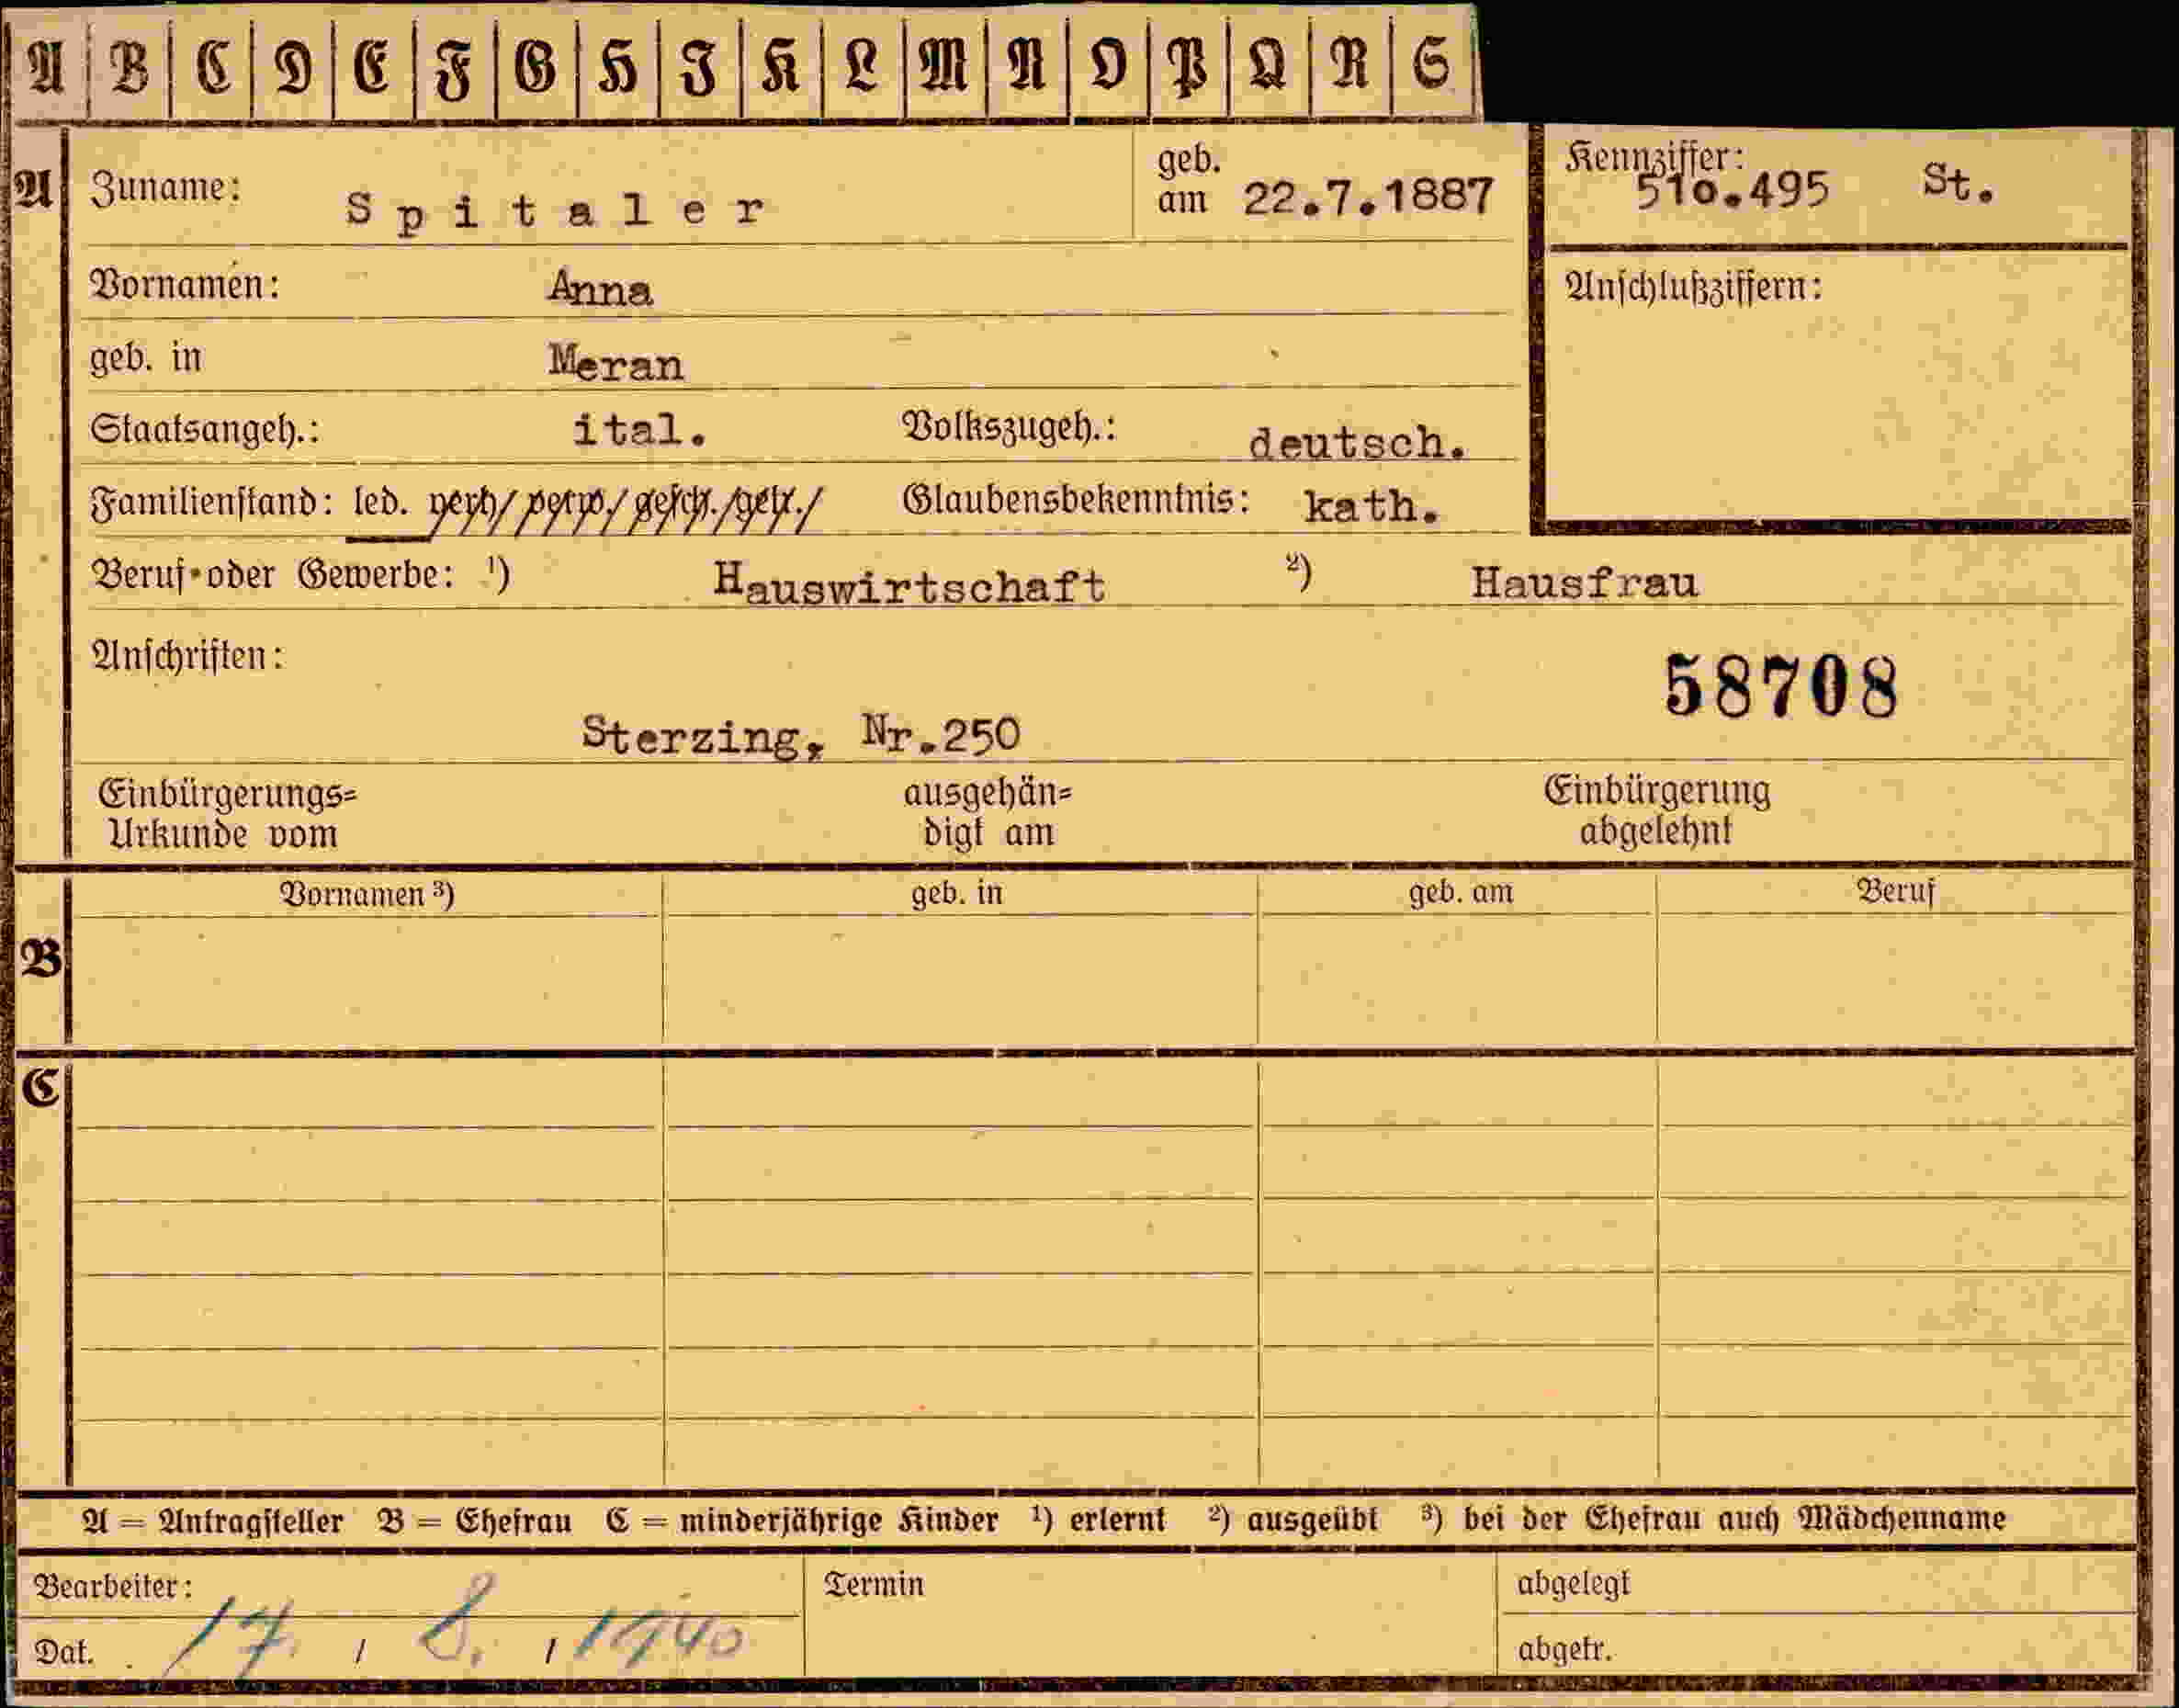 A B C D E F G H I K L M N O P Q R S
A Zuname: Spitaler geb. am 22.7.1887 Kennziffer: 510.495 St.
Vornamen: Anna Anschlußziffern:
geb. in Meran
Staatsangeh.: ital. Volkszugeh.: deutsch.
Familienstand: led. verh./verw./gesch./getr./ Glaubensbekenntnis: kath.
Beruf oder Gewerbe: ¹) Hauswirtschaft ²) Hausfrau
Anschriften: 58708
Sterzing, Nr.250
Einbürgerungs= ausgehän= Einbürgerung
Urkunde vom digt am abgelehnt
B Vornamen ³) geb. in geb. am Beruf
C
A = Antragsteller B = Ehefrau C = minderjährige Kinder ¹) erlernt ²) ausgeübt ³) bei der Ehefrau auch Mädchenname
Bearbeiter: Termin abgelegt
Dat. 17. / 8. / 1940 abgetr.